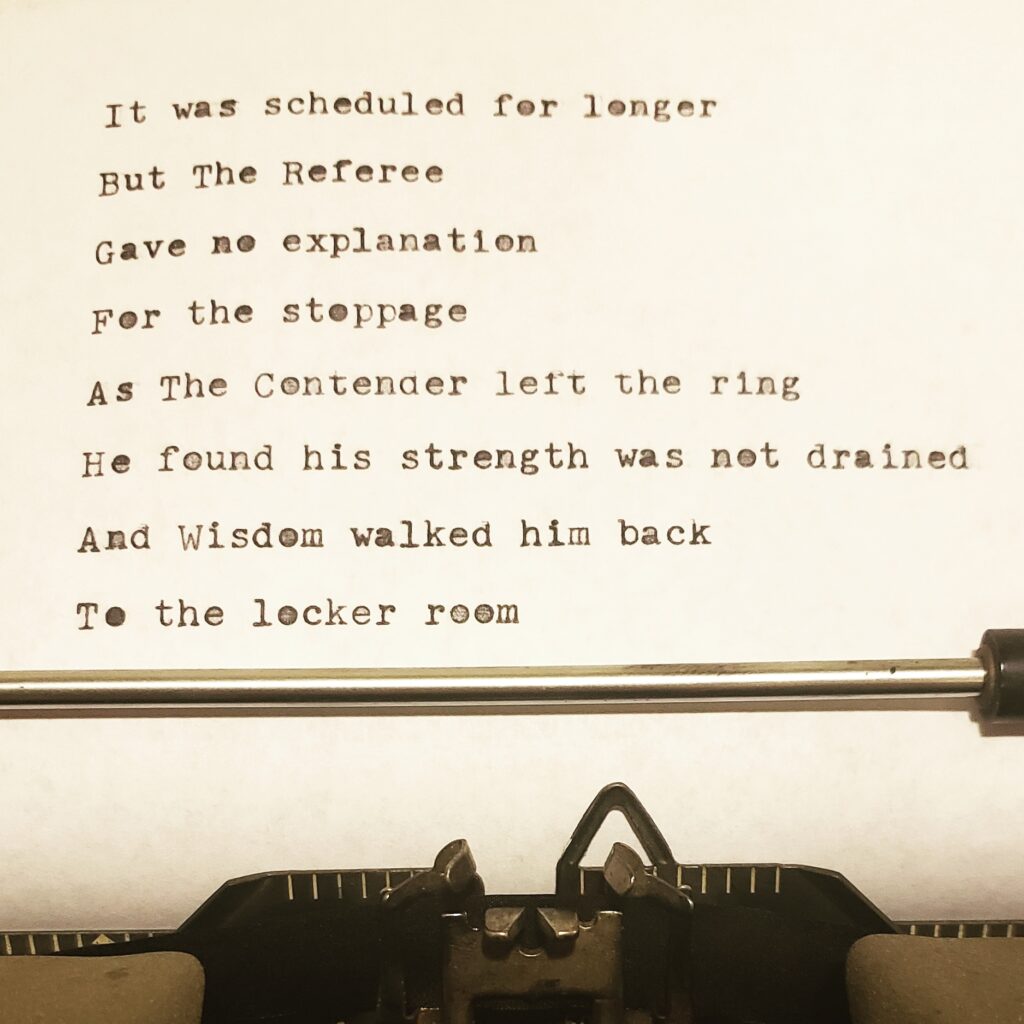 It was scheduled for longer
But The Referee
Gave no explanation
For the stoppage
As The Contender left the ring
He found his strength was not drained
And Wisdom walked him back
To the locker room